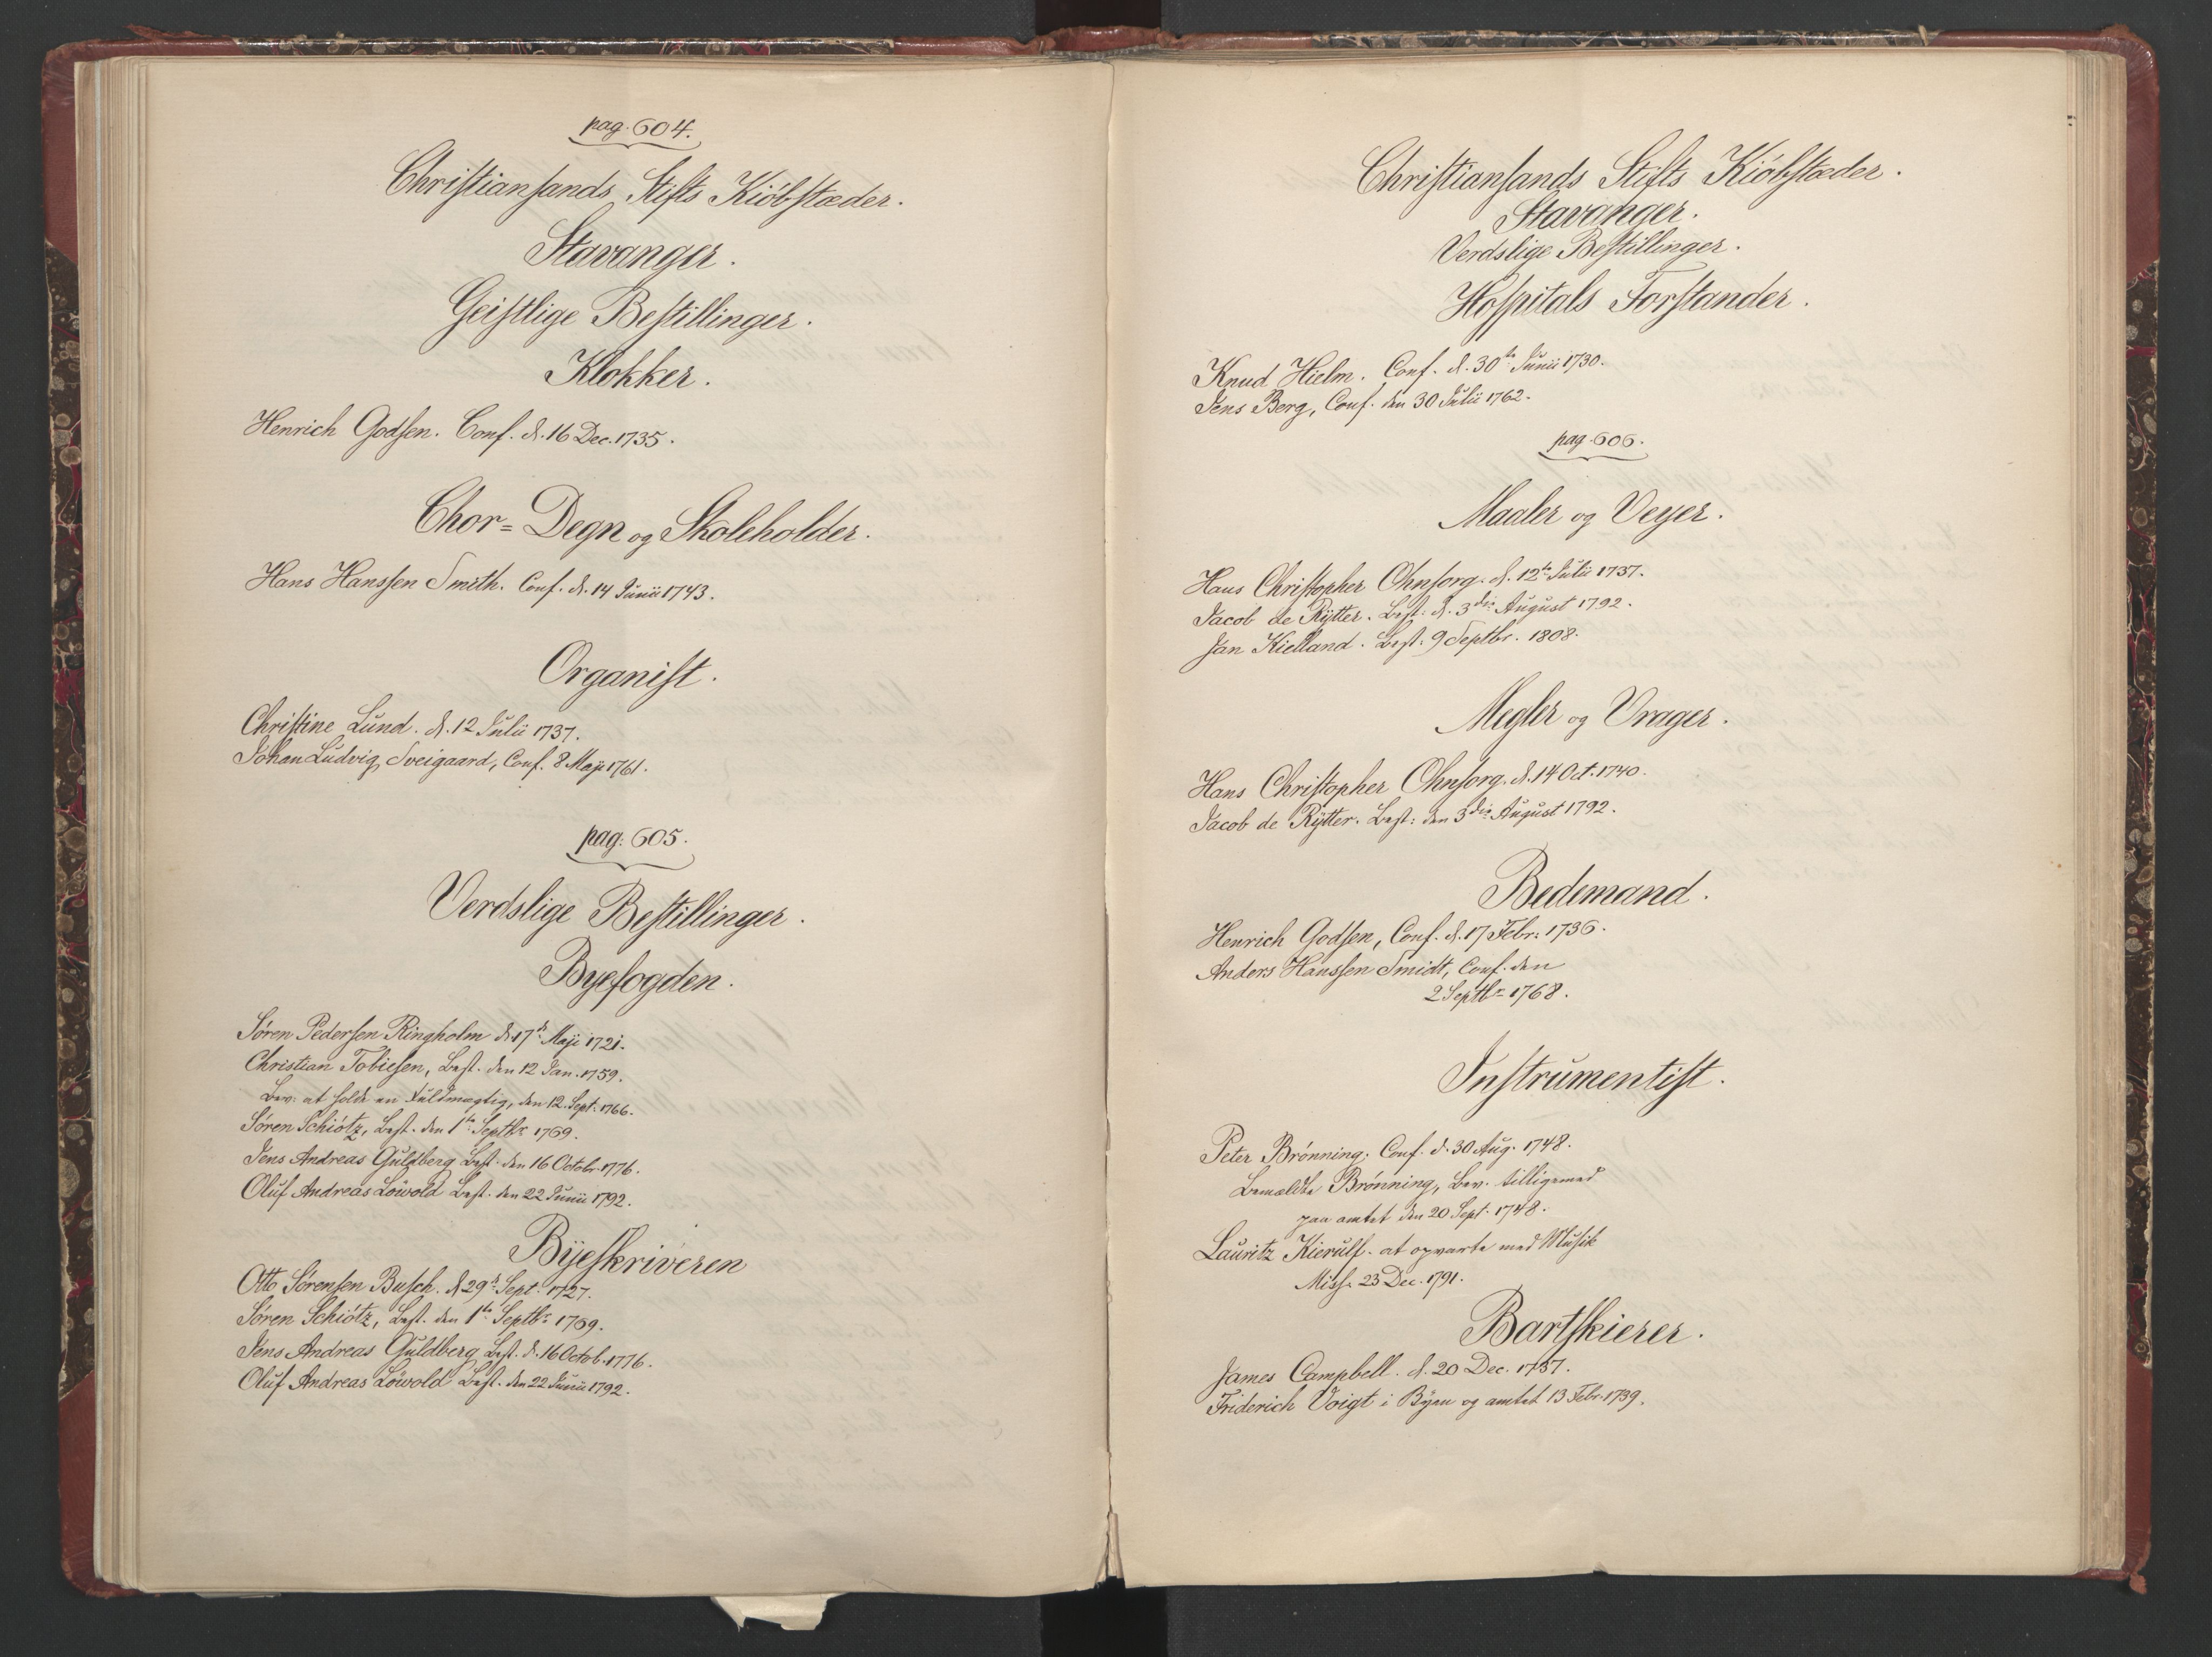 pag. 604.
Christiansands Stifts Kiöbstæder.
Stavanger.
Geistlige Bestillinger.
Klokker.
Henrich Godsen. Conf. d. 16 Dec. 1735.
Chor= Degn og Skoleholder.
Hans Hanssen Smith. Conf. d. 14 Junii 1743.
Organist.
Christine Lund. d. 12 Julii 1737.
Johan Ludvig Sveigaard, Conf. 8 Maji 1761.
pag: 605.
Verdslige Bestillinger.
Byefogden.
Søren Pedersen Ringholm d. 17d Maji 1721.
Christian Tobiesen, Best. den 12 Jan. 1759.
Bev: at holde en Fuldmægtig, den 12. Sept. 1766.
Søren Schiötz, Best. den 1te Septbr 1769.
Jens Andreas Guldberg Best. den 16 Octobr. 1776.
Oluf Andreas Löwold Best. den 22 Junii 1792.
Byeskriveren
Otto Sørensen Busch. d 29d Sept. 1727.
Søren Schiötz, Best. den 1te Septbr 1769.
Jens Andreas Guldberg Best. d. 16 Octob. 1776.
Oluf Andreas Löwold Best. den 22 Junii 1792.
Christiansands Stifts Kiöbstæder.
Stavanger.
Verdslige Bestillinger.
Hospitals Forstander.
Knud Hielm. Conf. d. 30te Junii 1730.
Jens Berg, Conf. den 30 Julii 1762.
pag. 606.
Maaler og Veyer.
Hans Christopher Ohnsorg. d. 12te Julii 1737.
Jacob de Rytter. Best: d. 3die August 1792.
Jan Kielland. Best. 9 Septbr. 1808.
Megler og Vrager.
Hans Christopher Ohnsorg. d. 14 Oct. 1740.
Jacob de Rytter. Best: den 3die August 1792.
Bedemand.
Henrich Godsen, Conf. d. 17 Febr. 1736.
Anders Hanssen Smidt, Conf. den
2 Septbr 1768.
Instrumentist.
Peter Brönning. Conf. d. 30 Aug. 1748.
Bemældte Brönning, Bev. tilligemed
paa amtet den 20 Sept. 1748.
Lauritz Kierulf. at opvarte med Musik
Miss. 23 Dec. 1791.
Bartskierer.
James Campbell. d. 20 Dec. 1737.
Friderich Voigt i Byen og amtet 13 Febr. 1739.